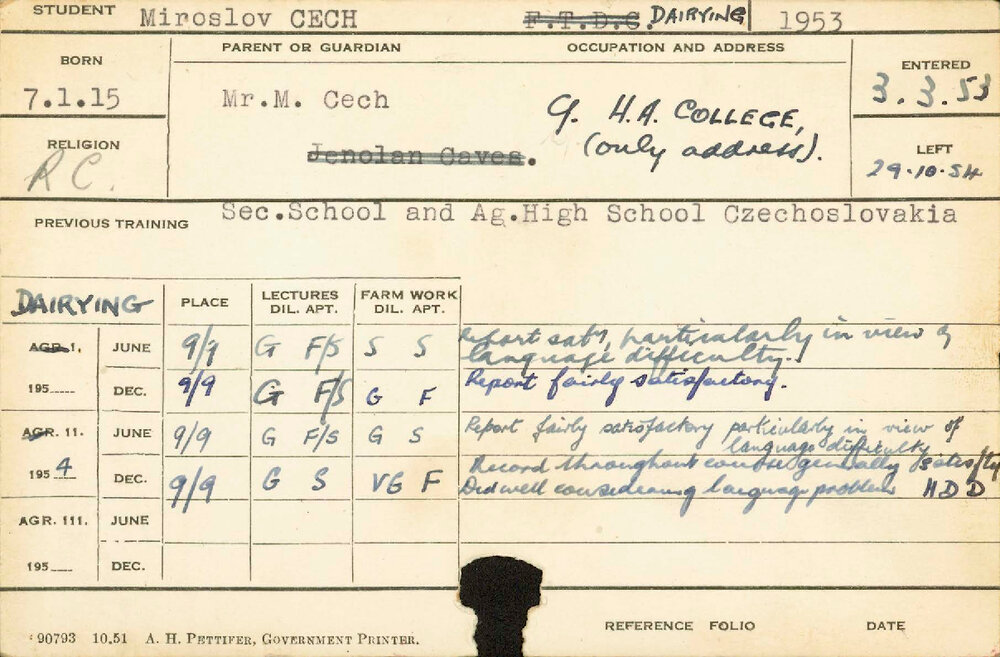 STUDENT Miroslov CECH F.T.D.C. DAIRYING 1953
BORN PARENT OR GUARDIAN OCCUPATION AND ADDRESS ENTERED
7.1.15 Mr.M. Cech 9. H.A. COLLEGE, 3.3.53
RELIGION Jenolan Caves. (only address). LEFT
RC. 29.10.54
PREVIOUS TRAINING Sec.School and Ag.High School Czechoslovakia
DAIRYING PLACE LECTURES FARM WORK
DIL. APT. DIL. APT.
AGR. 1. JUNE 9/9 G F/S S S Report saty, particularly in view of
language difficulty.
195 DEC. 9/9 G F/S G F Report fairly satisfactory.
AGR. 11. JUNE 9/9 G F/S G S Report fairly satisfactory particularly in view of
language difficulty
1954 DEC. 9/9 G S VG F Record throughout course generally satisfty
Did well considering language problem HDD
AGR. 111. JUNE
195 DEC.
90793 10.51 A. H. PETTIFER, GOVERNMENT PRINTER. REFERENCE FOLIO DATE